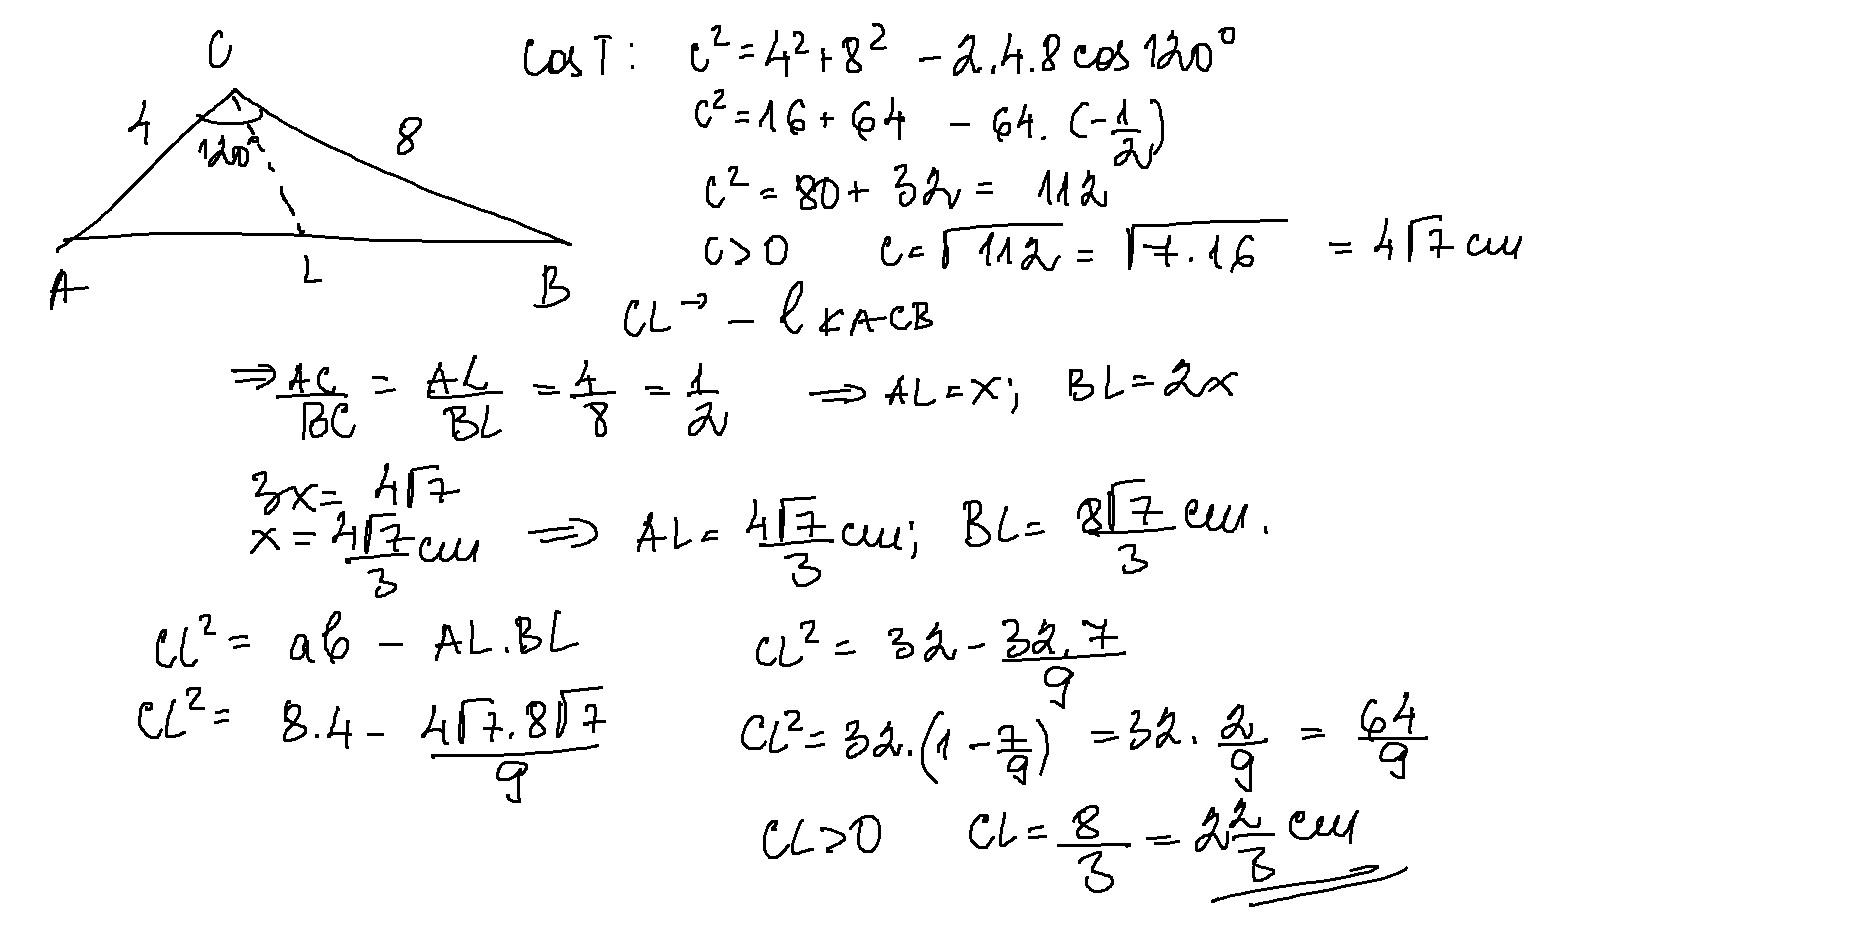 C
4
8
120°
A
L
B
cos T: c² = 4² + 8² - 2.4.8 cos 120°
c² = 16 + 64 - 64. (-1/2)
c² = 80 + 32 = 112
c > 0 c = √112 = √7.16 = 4√7 cm
CL→ - l ∢ACB
⇒ AC/BC = AL/BL = 4/8 = 1/2 ⇒ AL = x; BL = 2x
3x = 4√7
x = 4√7/3 cm ⇒ AL = 4√7/3 cm; BL = 8√7/3 cm.
CL² = ab - AL.BL
CL² = 8.4 - 4√7.8√7/9
CL² = 32 - 32.7/9
CL² = 32.(1 - 7/9) = 32. 2/9 = 64/9
CL > 0 CL = 8/3 = 2 2/3 cm